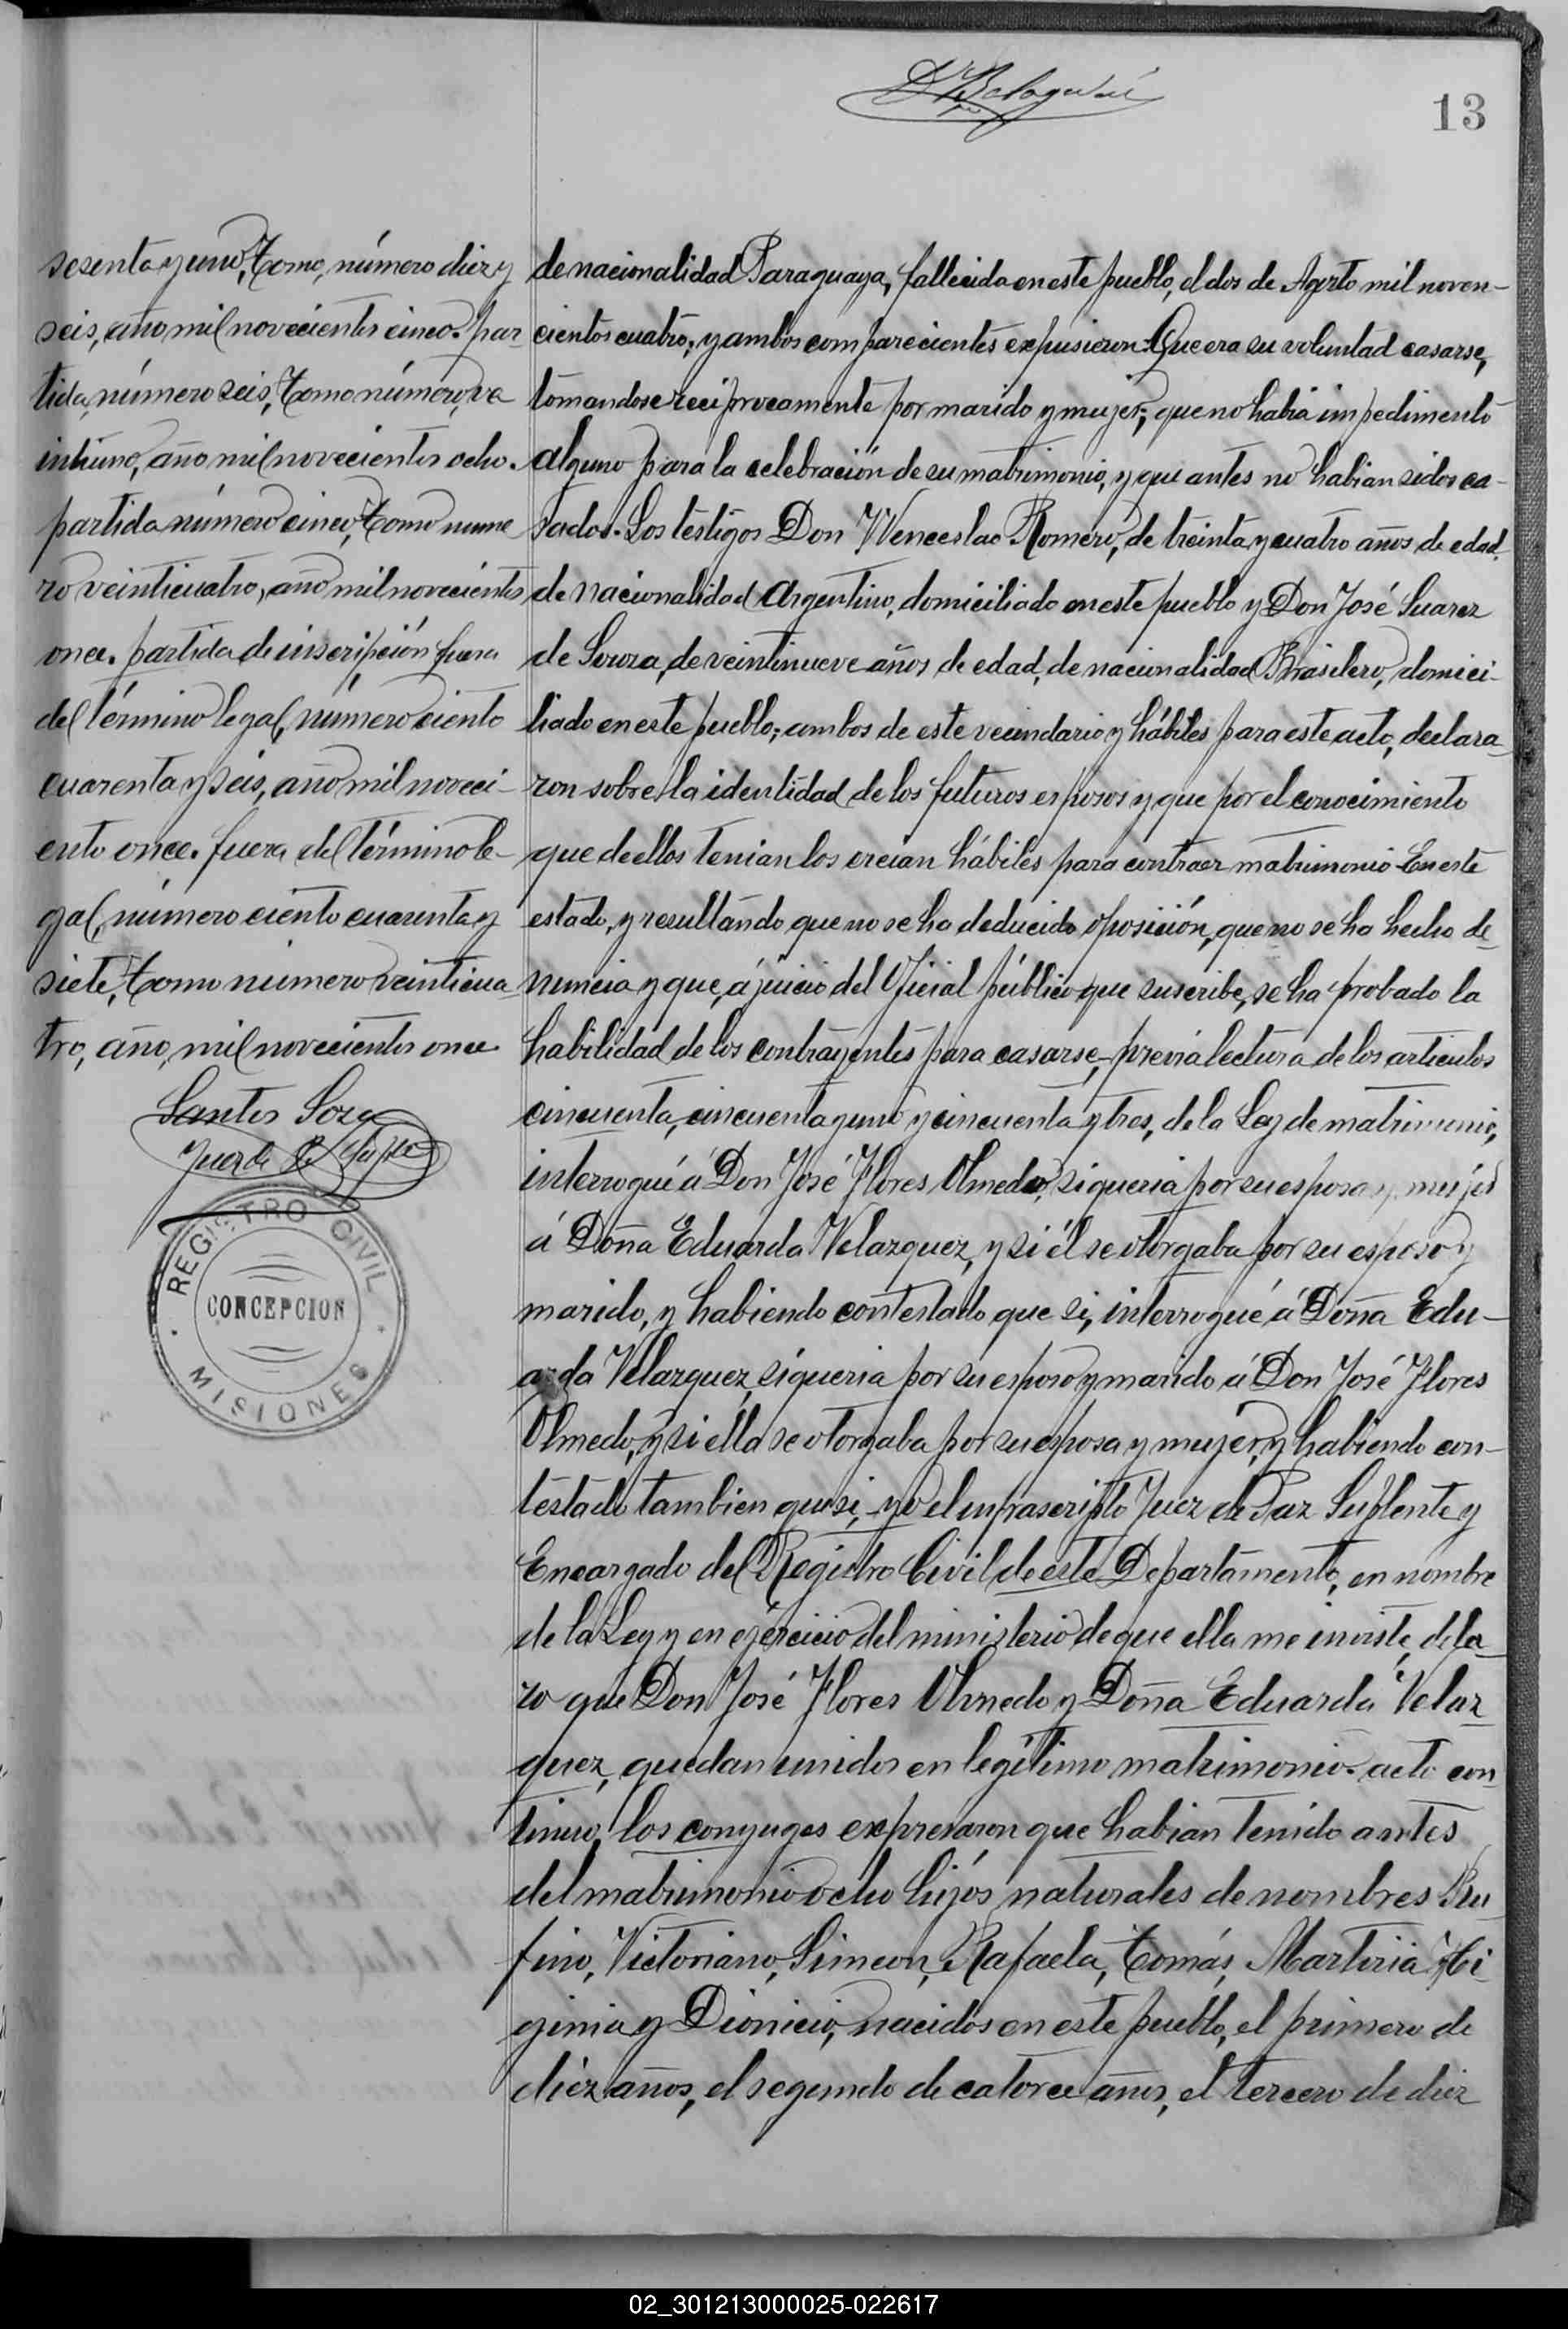 13
sesenta y uno, Tomo, número diez y
seis, año mil novecientos cinco. par
tida, número seis, Tomo número, ve
intiuno, año mil novecientos ocho.
partida número cinco, Tomo nume
ro veinticuatro, año mil novecientos
once. partida de inscripción fuera
del término legal, número ciento
cuarenta y seis, año mil noveci-
ento once. fuera del término le-
gal, número ciento cuarenta y
siete, Tomo número veinticua
tro, año, mil novecientos once
Santos Soza
Juez de
REGISTRO CIVIL
CONCEPCION
MISIONES
de nacionalidad Paraguaya, fallecida en este pueblo, el dos de Agosto mil noven-
cientos cuatro; y ambos comparecientes expusieron: Que era su voluntad casarse,
tomandose reciprocamente por marido y mujer; que no habia impedimento
alguno para la celebración de su matrimonio, y que antes no habian sidos ca-
sados. Los testigos Don Wenceslao Romero, de treinta y cuatro años de edad,
de nacionalidad Argentino, domiciliado en este pueblo y Don José Suarez
de Souza, de veintinueve años de edad, de nacionalidad Brasilero, domici-
liado en este pueblo; ambos de este vecindario y hábiles para este acto, declara
ron sobre la identidad de los futuros esposos y que por el conocimiento
que de ellos tenian los creian hábiles para contraer matrimonio - En este
estado, y resultando que no se ha deducido oposición, que no se ha hecho de
nuncia y que, á juicio del Oficial público que suscribe, se ha probado la
habilidad de los contrayentes para casarse, previa lectura de los articulos
cincuenta, cincuenta y uno y cincuenta y tres, de la Ley de matrimonio,
interrogué á Don José Flores Olmedo, si queria por su esposa y mujer
á Doña Eduarda Velazquez, y si él se otorgaba por su esposo y
marido, y habiendo contestado que si, interrogué á Doña Edu-
arda Velazquez, si queria por su esposo y marido á Don José Flores
Olmedo, y si ella se otorgaba por su esposa y mujer, y habiendo con-
testado tambien que si, yo el infrascripto Juez de Paz Suplente y
Encargado del Registro Civil de este Departamento, en nombre
de la Ley y en ejercicio del ministerio de que ella me inviste, decla
ro que Don José Flores Olmedo y Doña Eduarda Velaz
quez, quedan unidos en legítimo matrimonio. acto con
tinuo, los conyuges expresaron que habian tenido antes
del matrimonio ocho hijos naturales de nombres Ru
fino, Victoriano, Simeon, Rafaela, Tomás, Martiria, Hi
ginia y Dionicio, nacidos en este pueblo, el primero de
diez años, el segundo de catorce años, el tercero de diez
02_301213000025-022617